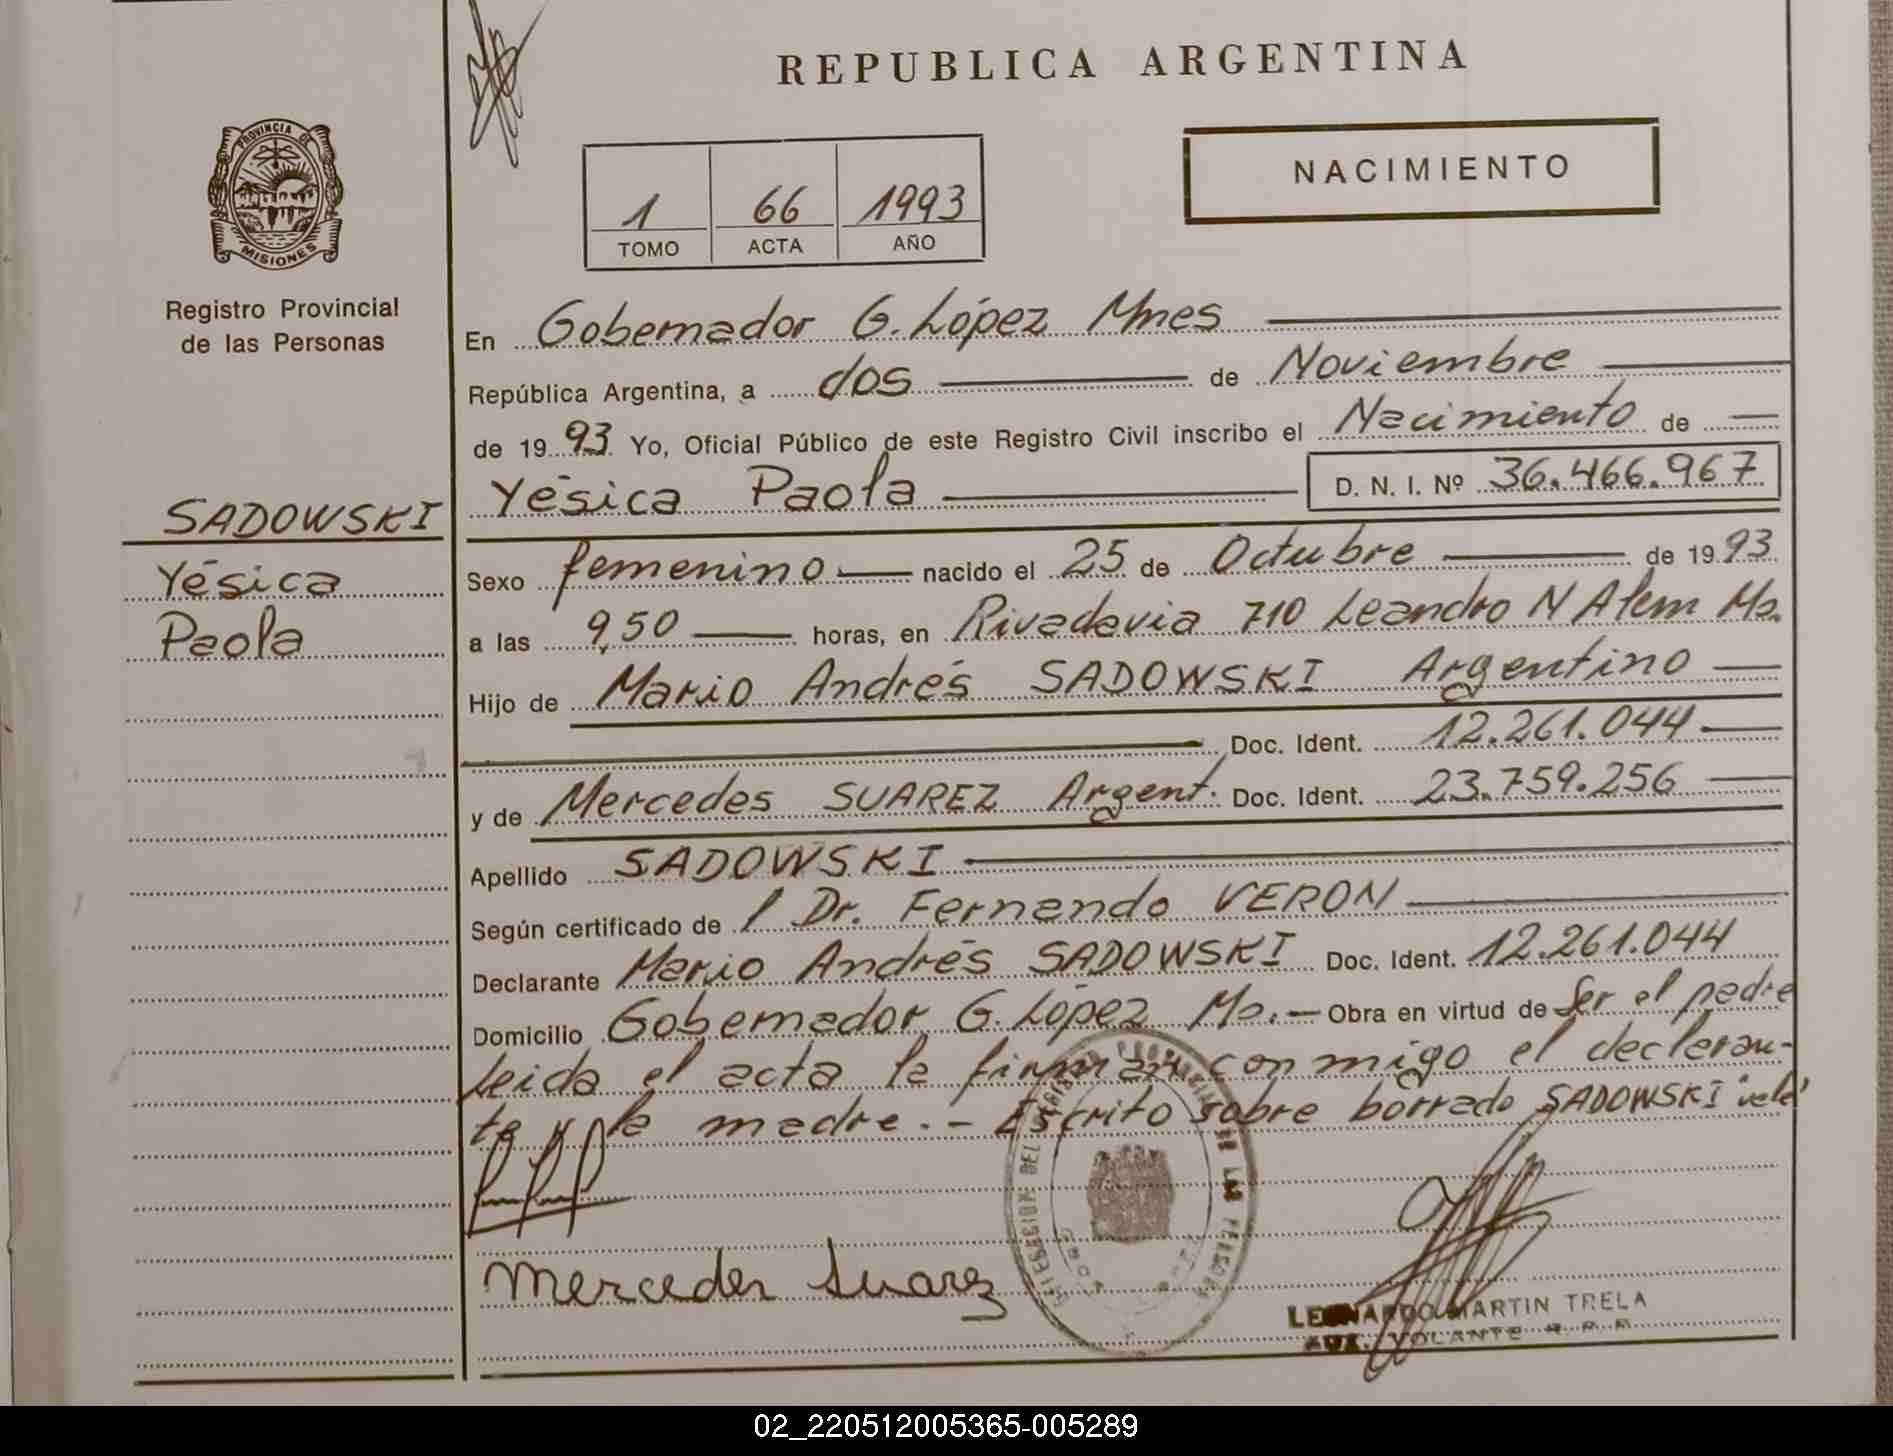 REPUBLICA ARGENTINA
PROVINCIA DE
MISIONES
Registro Provincial
de las Personas
1 66 1993
TOMO ACTA AÑO
NACIMIENTO
SADOWSKI
Yésica
Paola
En Gobernador G. López Mnes
República Argentina, a dos de Noviembre
de 1993 Yo, Oficial Público de este Registro Civil inscribo el Nacimiento de
Yésica Paola D. N. I. Nº 36.466.967
Sexo femenino nacido el 25 de Octubre de 1993
a las 9,50 horas, en Rivadavia 710 Leandro N Alem Ms.
Hijo de Mario Andrés SADOWSKI Argentino
Doc. Ident. 12.261.044
y de Mercedes SUAREZ Argent. Doc. Ident. 23.759.256
Apellido SADOWSKI
Según certificado de / Dr. Fernando VERON
Declarante Mario Andrés SADOWSKI Doc. Ident. 12.261.044
Domicilio Gobernador G. López Ms.- Obra en virtud de Ser el padre
Leida el acta la firman conmigo el declaran-
te y la madre.- Escrito sobre borrado SADOWSKI "vale"
Mercedes Suarez
LEONARDO MARTIN TRELA
AUX. VOLANTE R. P. P.
02_220512005365-005289